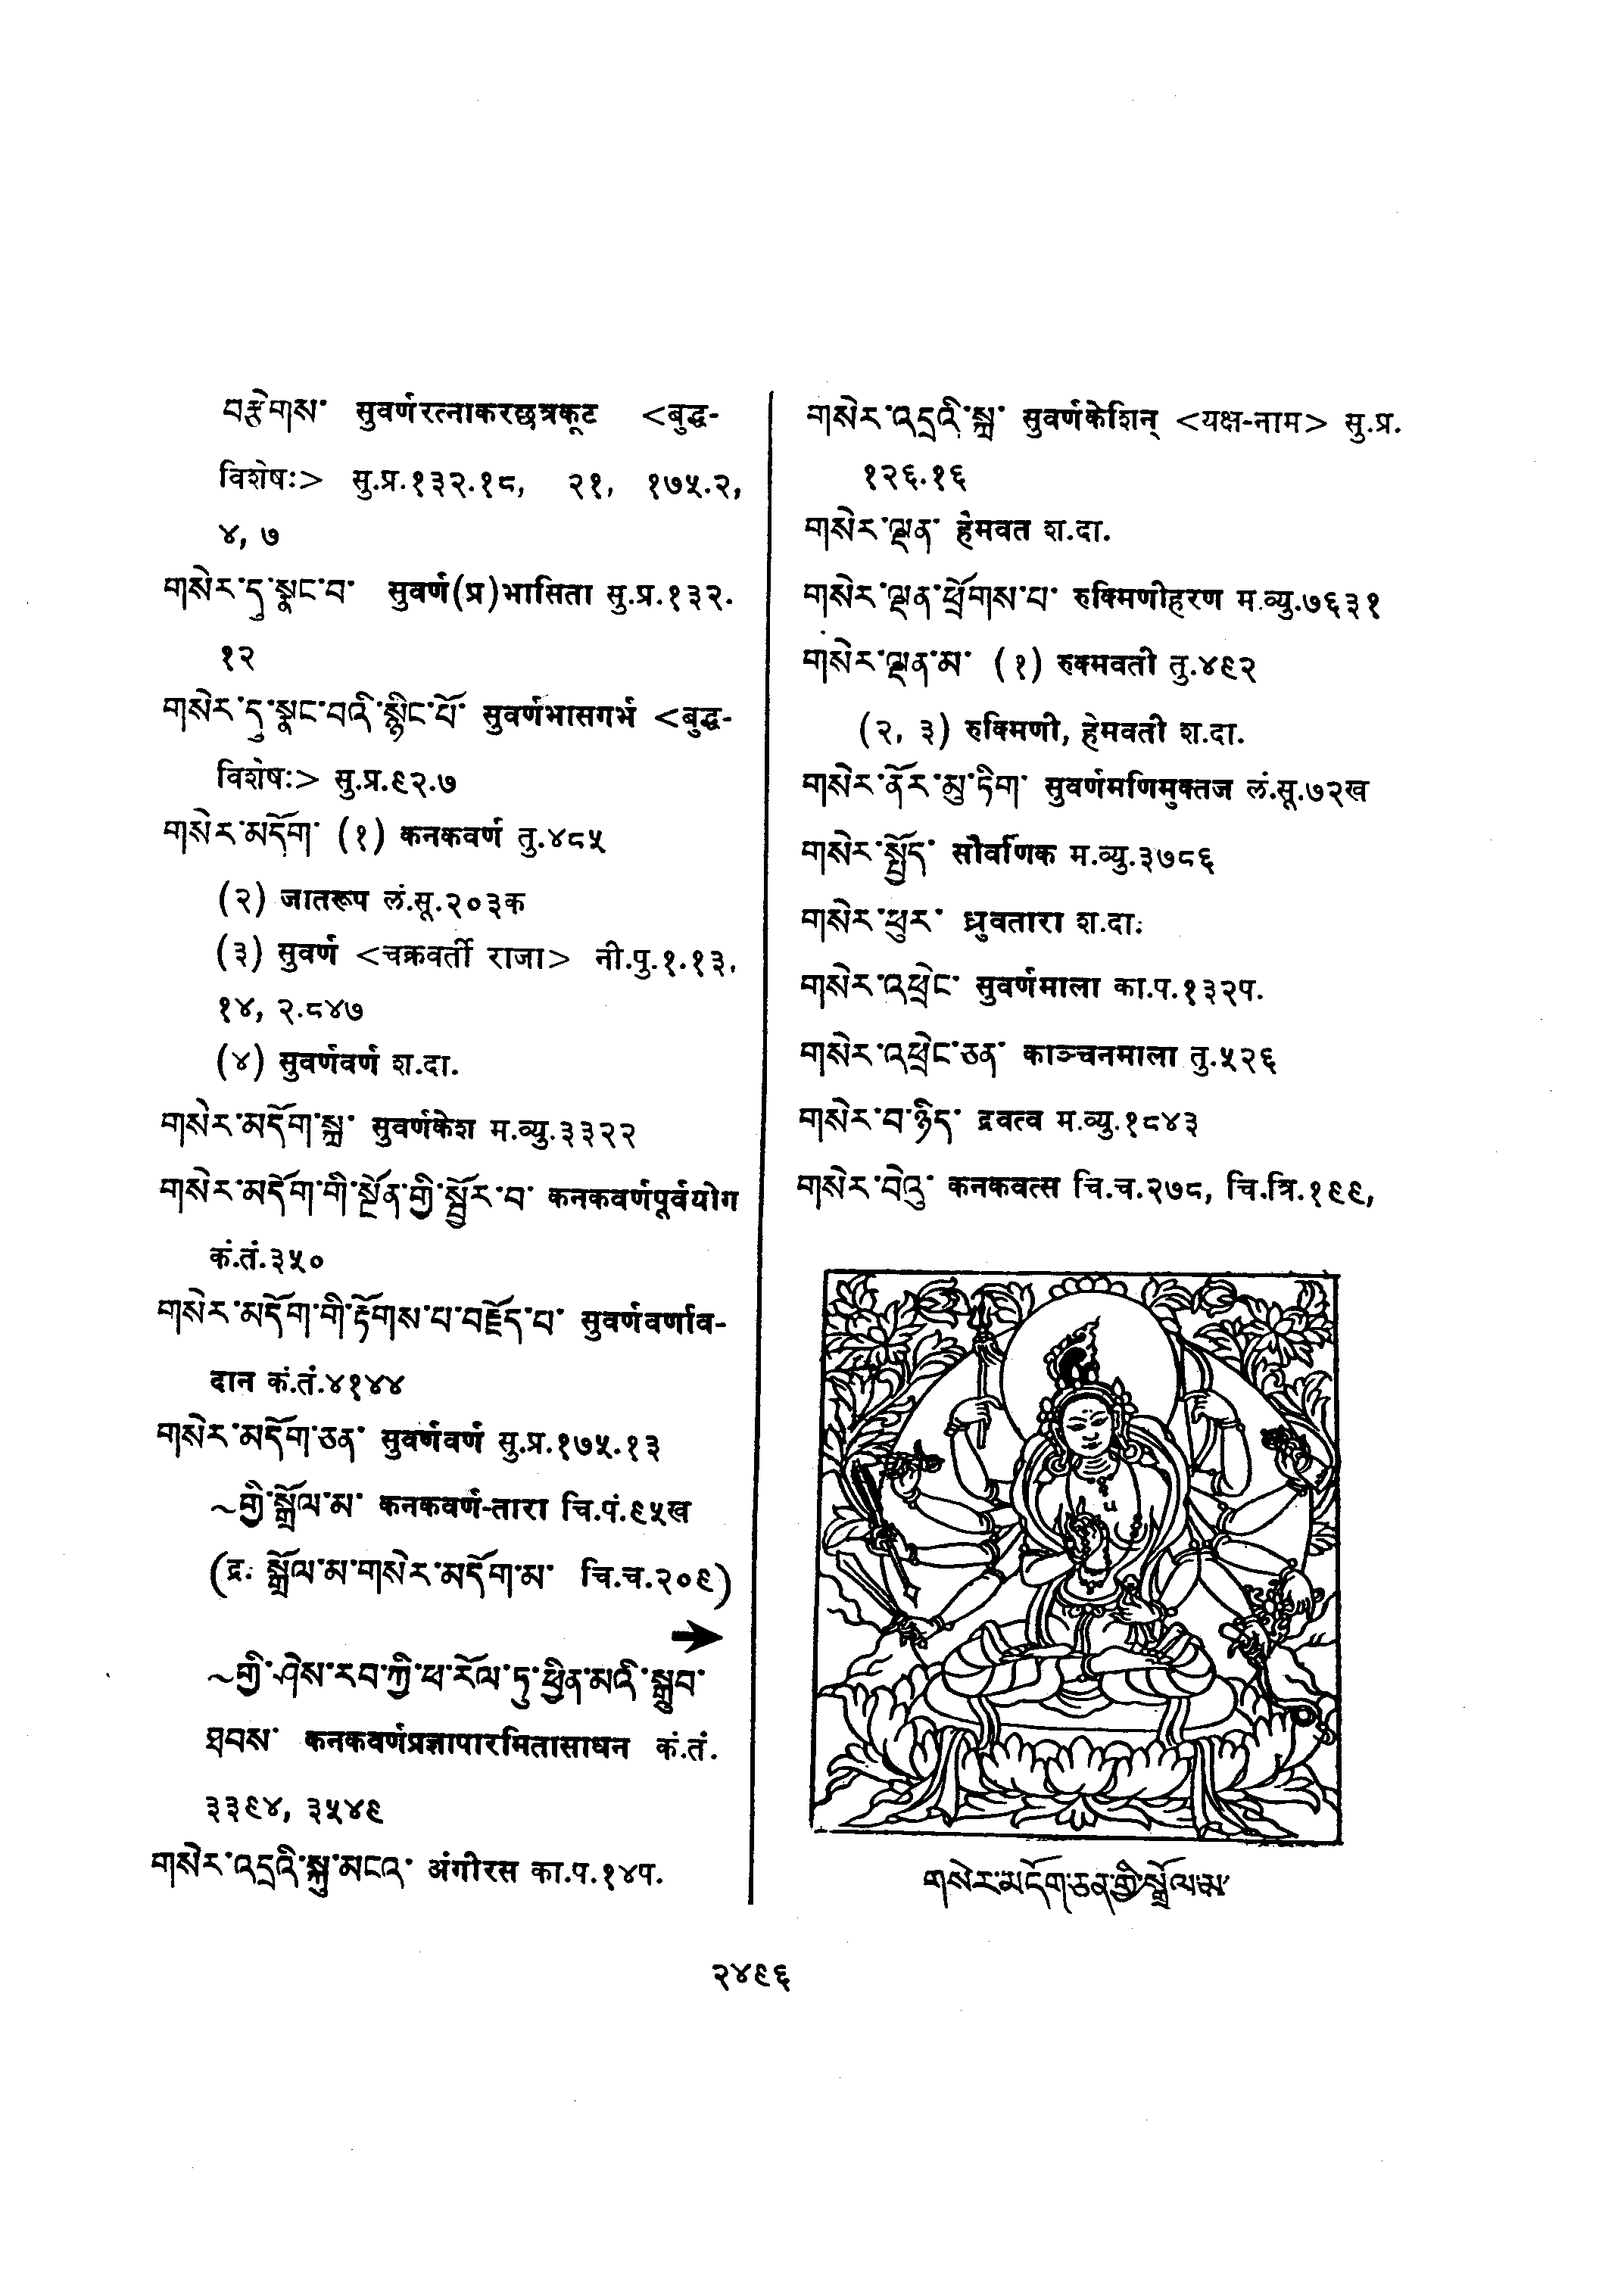 བརྩེགས་ सुवर्णरत्नाकरछत्रकूट <बुद्ध-
विशेषः> सु.प्र.१३२.१८, २१, १७५.२,
४, ७
གསེར་དུ་སྣང་བ་ सुवर्ण(प्र)भासिता सु.प्र.१३२.
१२
གསེར་དུ་སྣང་བའི་སྙིང་པོ་ सुवर्णभासगर्भ <बुद्ध-
विशेषः> सु.प्र.९२.७
གསེར་མདོག་ (१) कनकवर्ण तु.४८५
(२) जातरूप लं.सू.२०३क
(३) सुवर्ण <चक्रवर्ती राजा> नी.पु.१.१३,
१४, २.८४७
(४) सुवर्णवर्ण श.दा.
གསེར་མདོག་སྐྲ་ सुवर्णकेश म.व्यु.३३२२
གསེར་མདོག་གི་སྔོན་གྱི་སྦྱོར་བ་ कनकवर्णपूर्वयोग
कं.तं.३५०
གསེར་མདོག་གི་རྟོགས་པ་བརྗོད་པ་ सुवर्णवर्णाव-
दान कं.तं.४१४४
གསེར་མདོག་ཅན་ सुवर्णवर्ण सु.प्र.१७५.१३
~གྱི་སྒྲོལ་མ་ कनकवर्ण-तारा चि.पं.९५ख
(द्रः སྒྲོལ་མ་གསེར་མདོག་མ་ चि.च.२०९)
~གྱི་ཤེས་རབ་ཀྱི་ཕ་རོལ་ཏུ་ཕྱིན་མའི་སྒྲུབ་
ཐབས་ कनकवर्णप्रज्ञापारमितासाधन कं.तं.
३३९४, ३५४९
གསེར་འདྲའི་སྐུ་མངའ་ अंगीरस का.प.१४प.
གསེར་འདྲའི་སྐྲ་ सुवर्णकेशिन् <यक्ष-नाम> सु.प्र.
१२६.१६
གསེར་ལྡན་ हैमवत श.दा.
གསེར་ལྡན་ཕྲོགས་པ་ रुक्मिणीहरण म.व्यु.७६३१
གསེར་ལྡན་མ་ (१) रुक्मवती तु.४९२
(२, ३) रुक्मिणी, हेमवती श.दा.
གསེར་ནོར་མུ་ཏིག་ सुवर्णमणिमुक्तज लं.सू.७२ख
གསེར་སྤྱོད་ सौर्वाणिक म.व्यु.३७८६
གསེར་ཕུར་ ध्रुवतारा श.दा.
གསེར་འཕྲེང་ सुवर्णमाला का.प.१३२प.
གསེར་འཕྲེང་ཅན་ काञ्चनमाला तु.५२६
གསེར་བ་ཉིད་ द्रवत्व म.व्यु.१८४३
གསེར་བེའུ་ कनकवत्स चि.च.२७८, चि.त्रि.१९९,
གསེར་མདོག་ཅན་གྱི་སྒྲོལ་མ་
२४९६